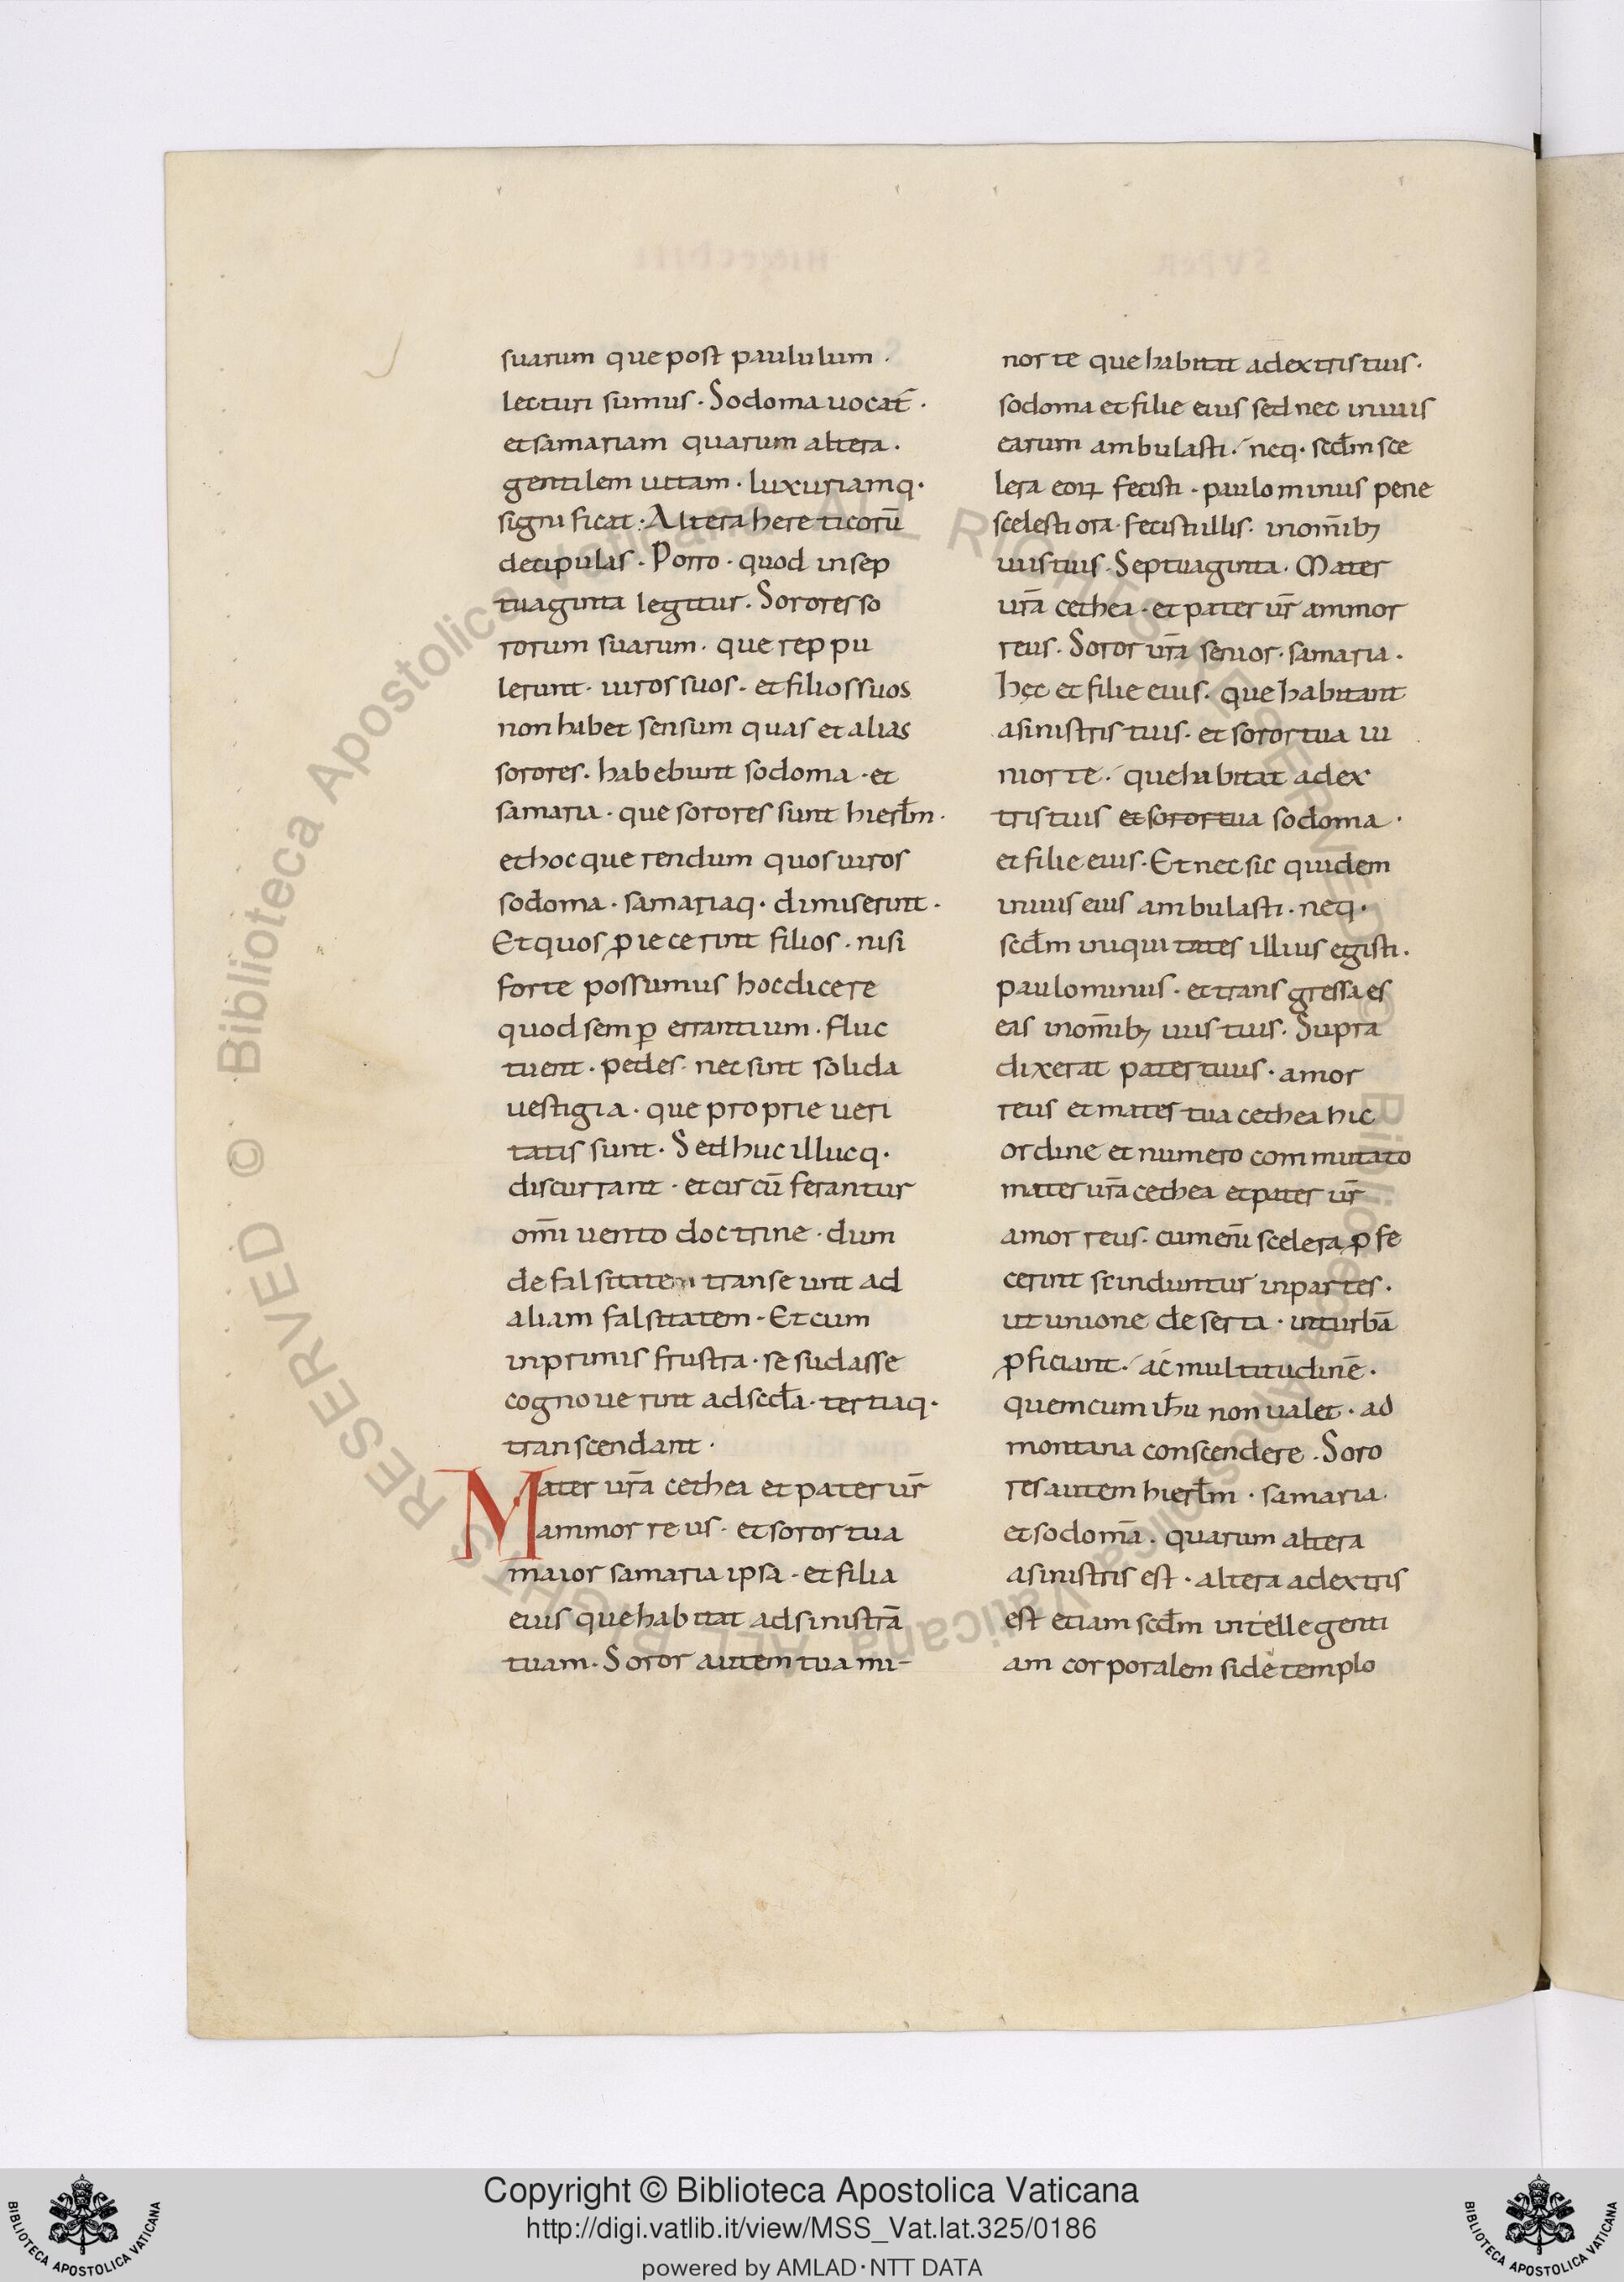 suarum que post paululum ·
lecturi sumus · Sodoma uocat̄ ·
et samariam quarum altera ·
gentilem uitam · luxuriamq·
significat · Altera hereticorū
decipulas · Porro · quod in sep
tuaginta legitur · Sorores so
rorum suarum · que reppu
lerunt · uiros suos · et filios suos
non habet sensum quas et alias
sorores · habebunt sodoma · et
samaria · que sorores sunt hierl̄m ·
et hoc querendum quos uiros
sodoma · samariaq· dimiserint ·
Et quos ꝓiecerint filios · nisi
forte possumus hoc dicere
quod semꝑ errantium · fluc
tuent · pedes · nec sint solida
uestigia · que proprie ueri
tatis sunt · Sed huc illucq·
discurrant · et circū ferantur
om̄i uento doctrine · dum
de falsitatem transeunt ad
aliam falsitatem · Et cum
inprimis frustra · se sudasse
cognouerint ad scd̄a · tertiaq·
transcendant ·
Mater ur̄a cethea et pater ur̄
ammorreus · et soror tua
maior samaria ipsa · et filia
eius que habitat ad sinistrā
tuam · Soror autem tua mi-
nor te que habitat adextris tuis ·
sodoma et filie eius sed nec in uiis
earum ambulasti · neq· scd̄m sce
lera eoꝝ fecisti · paulominus pene
scelestiora · fecisti illis · in om̄ibꝫ
uiis tuis · Septuaginta · Mater
ur̄a cethea · et pater ur̄ ammor
reus · Soror ur̄a senior · samaria ·
hęc et filie eius · que habitant
asinistris tuis · et soror tua iu
nior te · que habitat adex
tris tuis et soror tua sodoma ·
et filie eius · Et nec sic quidem
in uiis eius ambulasti · neq·
scd̄m iniquitates illius egisti ·
paulominus · et transgressa es
eas in om̄ibꝫ uiis tuis · Supra
dixerat pater tuus · amor
reus et mater tua cethea hic
ordine et numero commutato
mater ur̄a cethea et pater ur̄
amorreus · cum enī scelera ꝑfe
cerint scinduntur in partes ·
ut unione deserta · in turbā
ꝓficiant · ac multitudinē ·
quem cum ih̄u non ualet · ad
montana conscendere · Soro
res autem hierl̄m · samaria ·
et sodomā · quarum altera
asinistris est · altera adextris
est etiam scd̄m intellegenti
am corporalem si de templo
RESERVED © Biblioteca Apostolica Vaticana ALL RIGHTS RESERVED © Biblioteca Apostolica Vaticana ALL RIGHTS
Copyright © Biblioteca Apostolica Vaticana
http://digi.vatlib.it/view/MSS_Vat.lat.325/0186
powered by AMLAD·NTT DATA
BIBLIOTECA APOSTOLICA VATICANA
BIBLIOTECA APOSTOLICA VATICANA